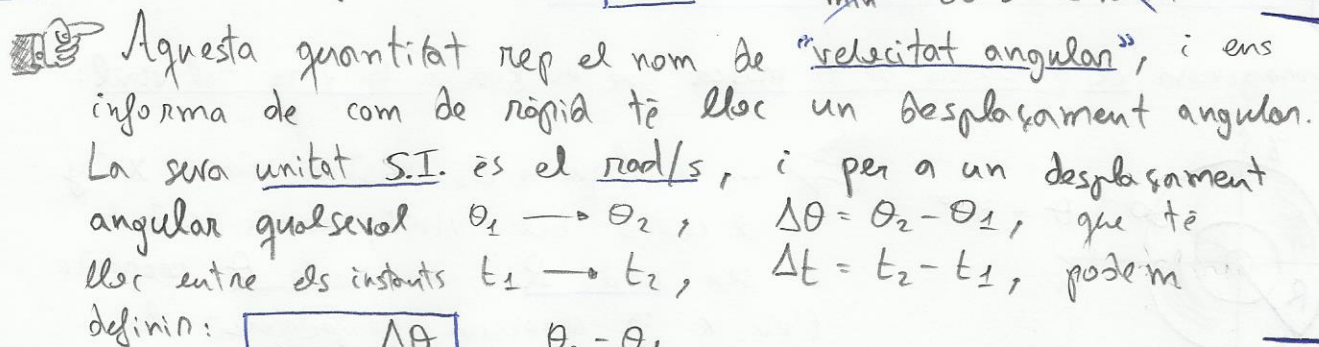 Aquesta quantitat rep el nom de "velocitat angular", i ens
informa de com de ràpid té lloc un desplaçament angular.
La seva unitat S.I. és el rad/s, i per a un desplaçament
angular qualsevol θ₁ → θ₂, Δθ = θ₂ - θ₁, que té
lloc entre els instants t₁ → t₂, Δt = t₂ - t₁, podem
definir: Δθ